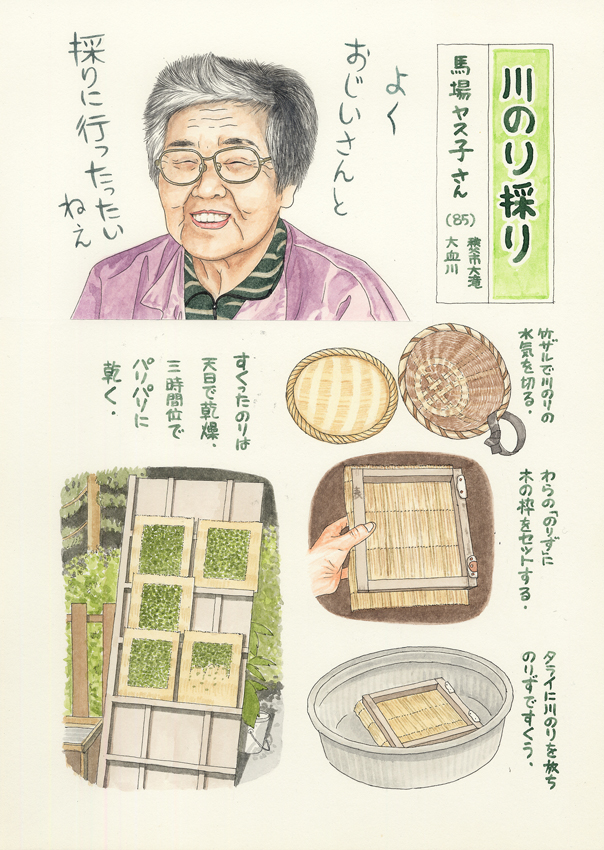 川のり採り
馬場ヤス子さん
(85)
秩父市大滝
大血川
よく
おじいさんと
採りに行ったったい
ねえ
竹ザルで川のりの
水気を切る。
わらの「のりず」に
木の枠をセットする。
タライに川のりを放ち
のりずですくう。
すくったのりは
天日で乾燥、
三時間位で
パリパリに
乾く。